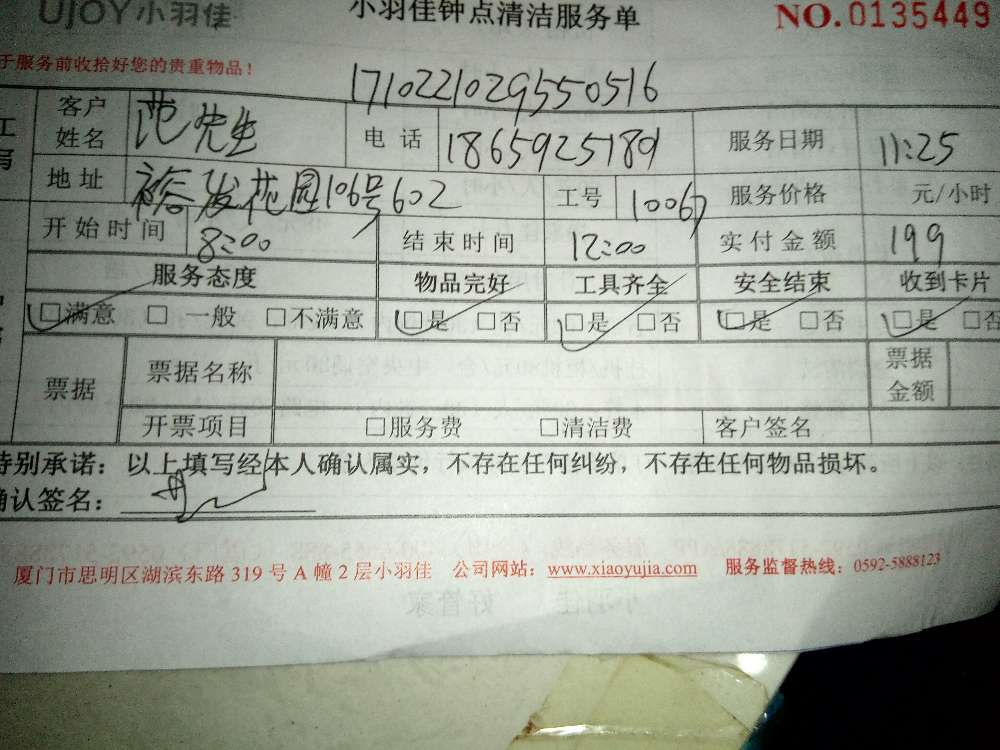 UJOY小羽佳 小羽佳钟点清洁服务单 NO.0135449
于服务前收拾好您的贵重物品！
1710221029550516
客户姓名 范先生 电话 18659251801 服务日期 11:25
地址 裕发花园106号602 工号 10067 服务价格 元/小时
开始时间 8:00 结束时间 12:00 实付金额 199
服务态度 物品完好 工具齐全 安全结束 收到卡片
☐满意 ☐一般 ☐不满意 ☐是 ☐否 ☐是 ☐否 ☐是 ☐否 ☐是 ☐否
票据 票据名称 票据金额
开票项目 ☐服务费 ☐清洁费 客户签名
特别承诺：以上填写经本人确认属实，不存在任何纠纷，不存在任何物品损坏。
确认签名：
厦门市思明区湖滨东路 319 号 A 幢 2 层小羽佳 公司网站：www.xiaoyujia.com 服务监督热线：0592-5888123